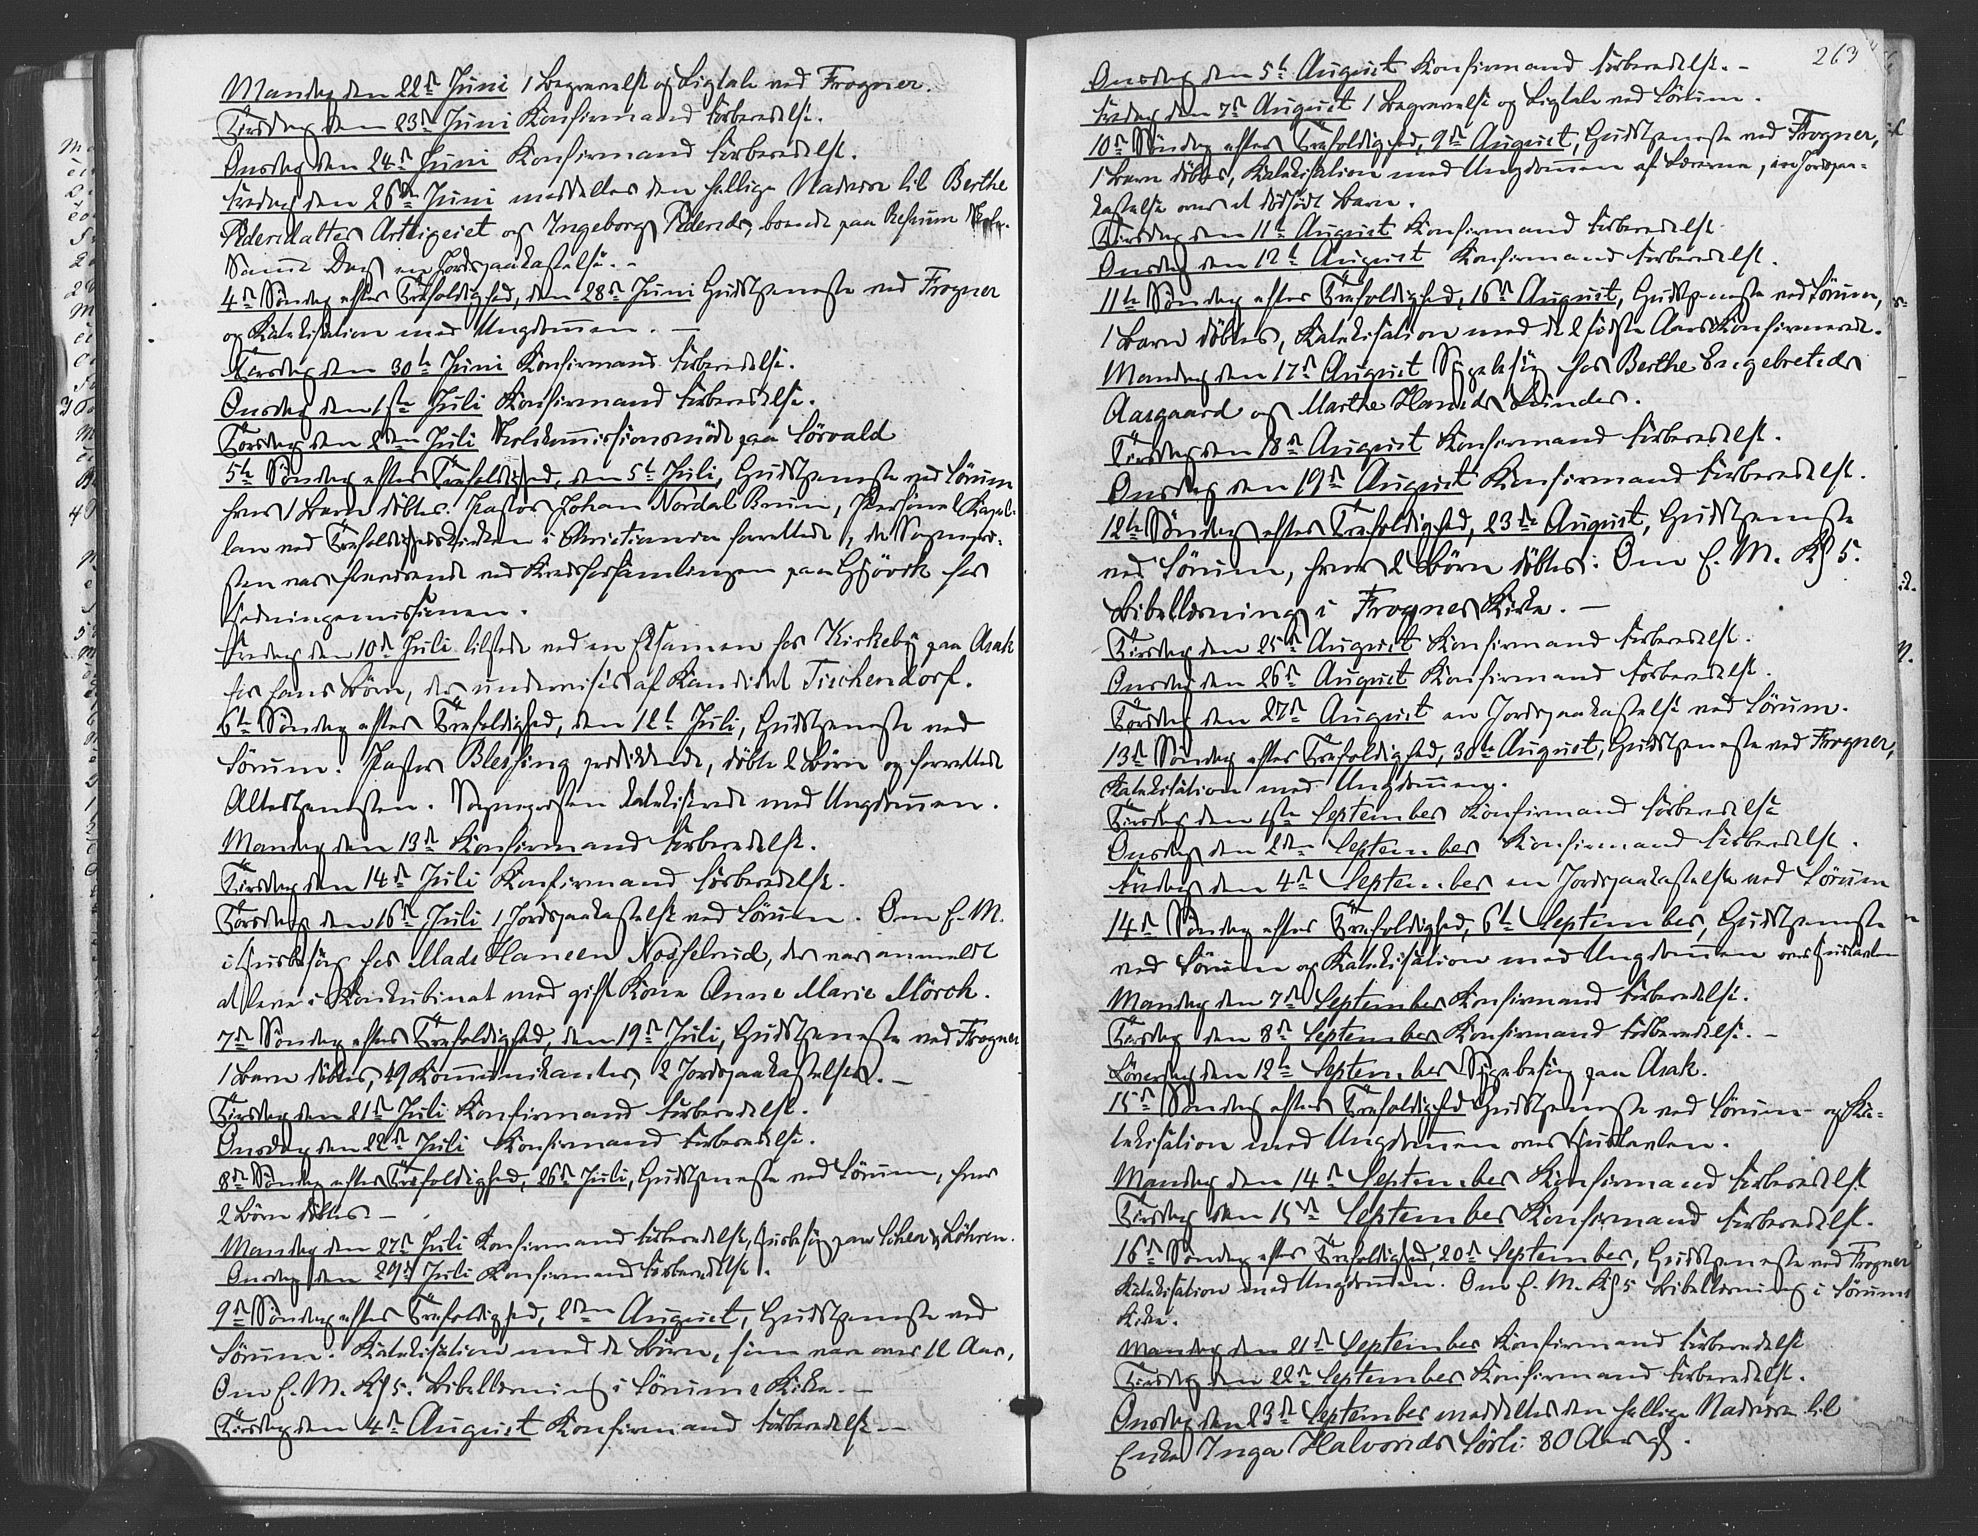 Mandag den 22de Juni 1 Begravelse og Ligtale ved Frogner.
Tirsdag den 23de Juni Konfirmand Forberedelse.
Onsdag den 24de Juni Konfirmand Forberedelse.
Fredag den 26de Juni meddeltes den hellige Nadvere til Berthe
Pedersdatter Artligeiet og Ingeborg Pedersd, boende paa Refsum
Samme Dag en Jordpaakastelse. -
4de Søndag efter Trefoldighed, den 28de Juni Gudstjeneste ved Frogner
og Katekisation med Ungdommen. -
Tirsdag den 30te Juni Konfirmand Forberedelse.
Onsdag den 1ste Juli Konfirmand Forberedelse.
Torsdag den 2den Juli Skolekommissionsmöde paa Sörvald
5te Søndag efter Trefoldighed, den 5te Juli, Gudstjeneste ved Sörum
hvor 1 Barn döbtes. Pastor Johan Nordal Brun, Personel Kapel-
lan ved Trefoldighedskirken i Christiania forrettede, da Sognepre-
sten var fraværende ved Kredsforsamlingen paa Gjövik for
Hedningemissionen.
Fredag den 10de Juli tilstede ved en Eksamen hos Kirkeby paa Asak
for hans Börn, der undervises af Kandidat Tischendorf.
6te Søndag efter Trefoldighed, den 12te Juli, Gudstjeneste ved
Sörum. Pastor Blessing predikede, döbte 2 Börn og forrettede
Altertjenesten. Sognepresten katekiserede med Ungdommen.
Mandag den 13de Konfirmand Forberedelse.
Tirsdag den 14de Juli Konfirmand Forberedelse.
Torsdag den 16de Juli 1 Jordpaakastelse ved Sörum. Om E. M.
i Husbesög hos Mads Hansen Nosselrud, der var anmeldt
at leve i Konkubinat med gift Kone Anne Marie Mörch.
7de Søndag efter Trefoldighed, den 19de Juli, Gudstjeneste ved Frogner
1 Barn döbtes, 49 Kommunikanter, 2 Jordpaakastelser. -
Tirsdag den 21de Juli Konfirmand Forberedelse.
Onsdag den 22de Juli Konfirmand Forberedelse.
8de Søndag efter Trefoldighed, 26de Juli, Gudstjeneste ved Sörum, hvor
2 Börn döbtes. -
Mandag den 27de Juli Konfirmand Forberedelse, Husbesög paa
Onsdag den 29de Juli Konfirmand Forberedelse.
9de Søndag efter Trefoldighed, 2den August, Gudstjeneste ved
Sörum. Katekisation med de Börn, som var over 12 Aar,
Om E. M. Kl 5. Bibellesning i Sörums Kirke. -
Tirsdag den 4de August Konfirmand Forberedelse -
263
Onsdag den 5te August Konfirmand Forberedelse. -
Fredag den 7de August 1 Begravelse og Ligtale ved Sörum.
10de Søndag efter Trefoldighed, 9de August, Gudstjeneste ved Frogner,
1 Barn döbtes, Katekisation med Ungdommen af Leirerne, en Jordpaa-
kastelse over et dödfödt Barn.
Tirsdag den 11te August Konfirmand Forberedelse.
Onsdag den 12te August Konfirmand Forberedelse.
11te Søndag efter Trefoldighed, 16de August, Gudstjeneste ved Sörum,
1 Barn döbtes, Katekisation med de 2 sidste Aars Konfirmerede.
Mandag den 17de August Sygebesög hos Berthe Engebretsds
Aasgaard og Marthe Hansds
Tirsdag den 18de August Konfirmand Forberedelse.
Onsdag den 19de August Konfirmand Forberedelse.
12te Søndag efter Trefoldighed, 23de August, Gudstjeneste
ved Sörum, hvor 2 Börn döbtes. Om E. M. Kl 5.
Bibellesning i Frogner Kirke. -
Tirsdag den 25de August Konfirmand Forberedelse.
Onsdag den 26de August Konfirmand Forberedelse.
Torsdag den 27de August en Jordpaakastelse ved Sörum.
13de Søndag efter Trefoldighed, 30te August, Gudstjeneste ved Frogner,
Katekisation med Ungdommen.
Tirsdag den 1ste September Konfirmand Forberedelse
Onsdag den 2den September Konfirmand Forberedelse.
Fredag den 4de September en Jordpaakastelse ved Sörum
14de Søndag efter Trefoldighed, 6te September, Gudstjeneste
ved Sörum og Katekisation med Ungdommen over Hustavlen
Mandag den 7de September Konfirmand Forberedelse.
Tirsdag den 8de September Konfirmand Forberedelse. -
Löverdag den 12te September Sygebesög paa Asak.
15de Søndag efter Trefoldighed Gudstjeneste ved Sörum - og Ka-
tekisation med Ungdommen over Hustavlen.
Mandag den 14de September Konfirmand Forberedelse
Tirsdag den 15de September Konfirmand Forberedelse.
16de Søndag efter Trefoldighed, 20de September, Gudstjeneste ved Frogner
Katekisation med Ungdommen. Om E. M. Kl 5 Bibellesning i Sörums
Kirke.
Mandag den 21de September Konfirmand Forberedelse
Tirsdag den 22de September Konfirmand Forberedelse.
Onsdag den 23de September meddeltes den hellige Nadvere til
Enke Inga Halvorsds Sörli 80 Aar gl.